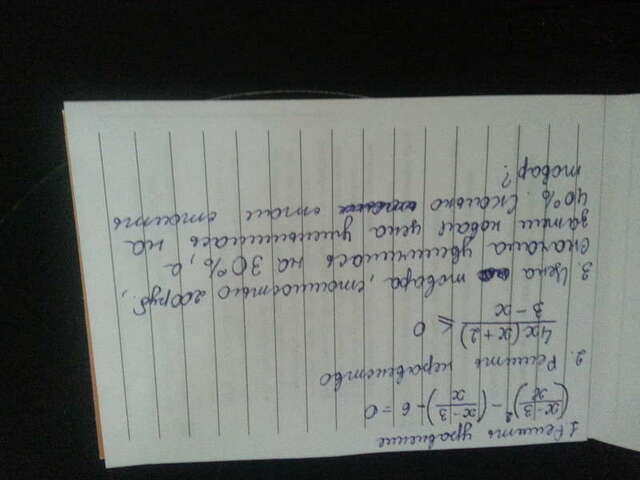 1. Решить уравнение
(x-3/x)² - (x-3/x) - 6 = 0
2. Решить неравенство
4x(x+2)/3-x ≤ 0
3. Цена товара, стоимостью 200руб.,
сначала увеличилась на 30%, а
затем новая цена уменьшилась на
40%. Сколько стал стоить
товар?